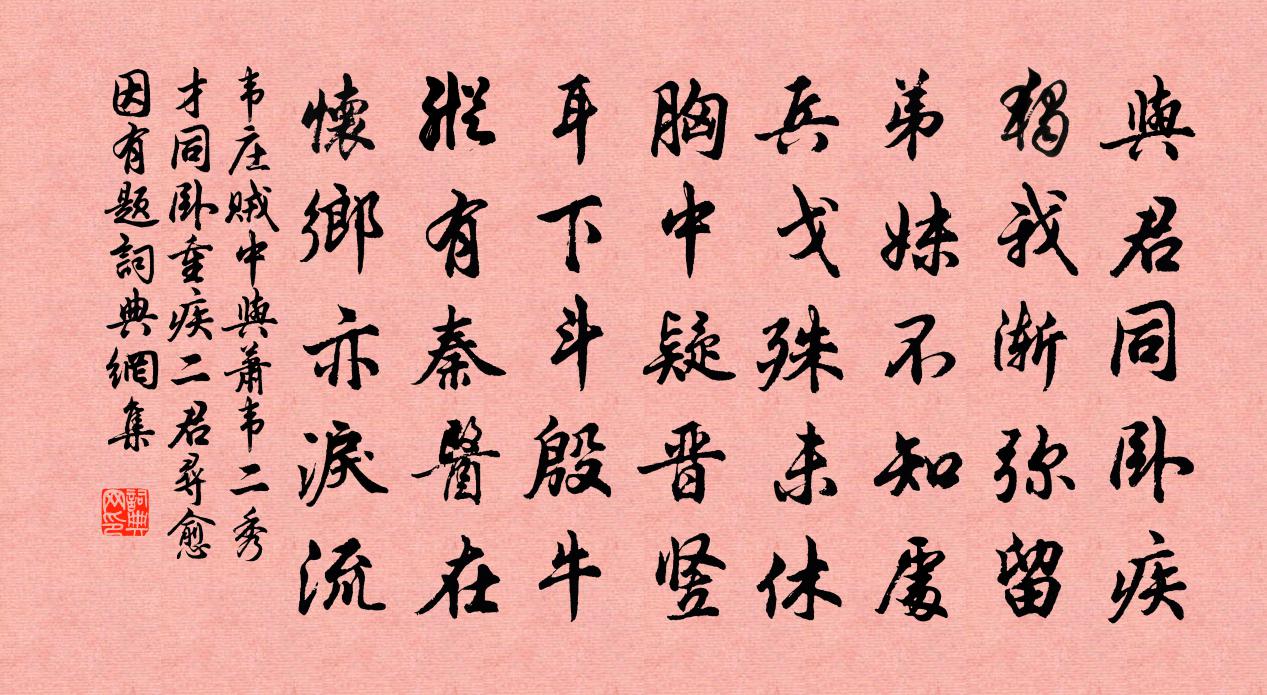 與君同卧疾
獨我漸弥留
弟妹不知處
兵戈殊未休
胸中疑晋竖
耳下斗殷牛
縱有秦醫在
懷鄉亦淚流
韦庄贼中與萧韦二秀
才同卧重疾二君尋愈
因有题詞典網集
詞典
网印